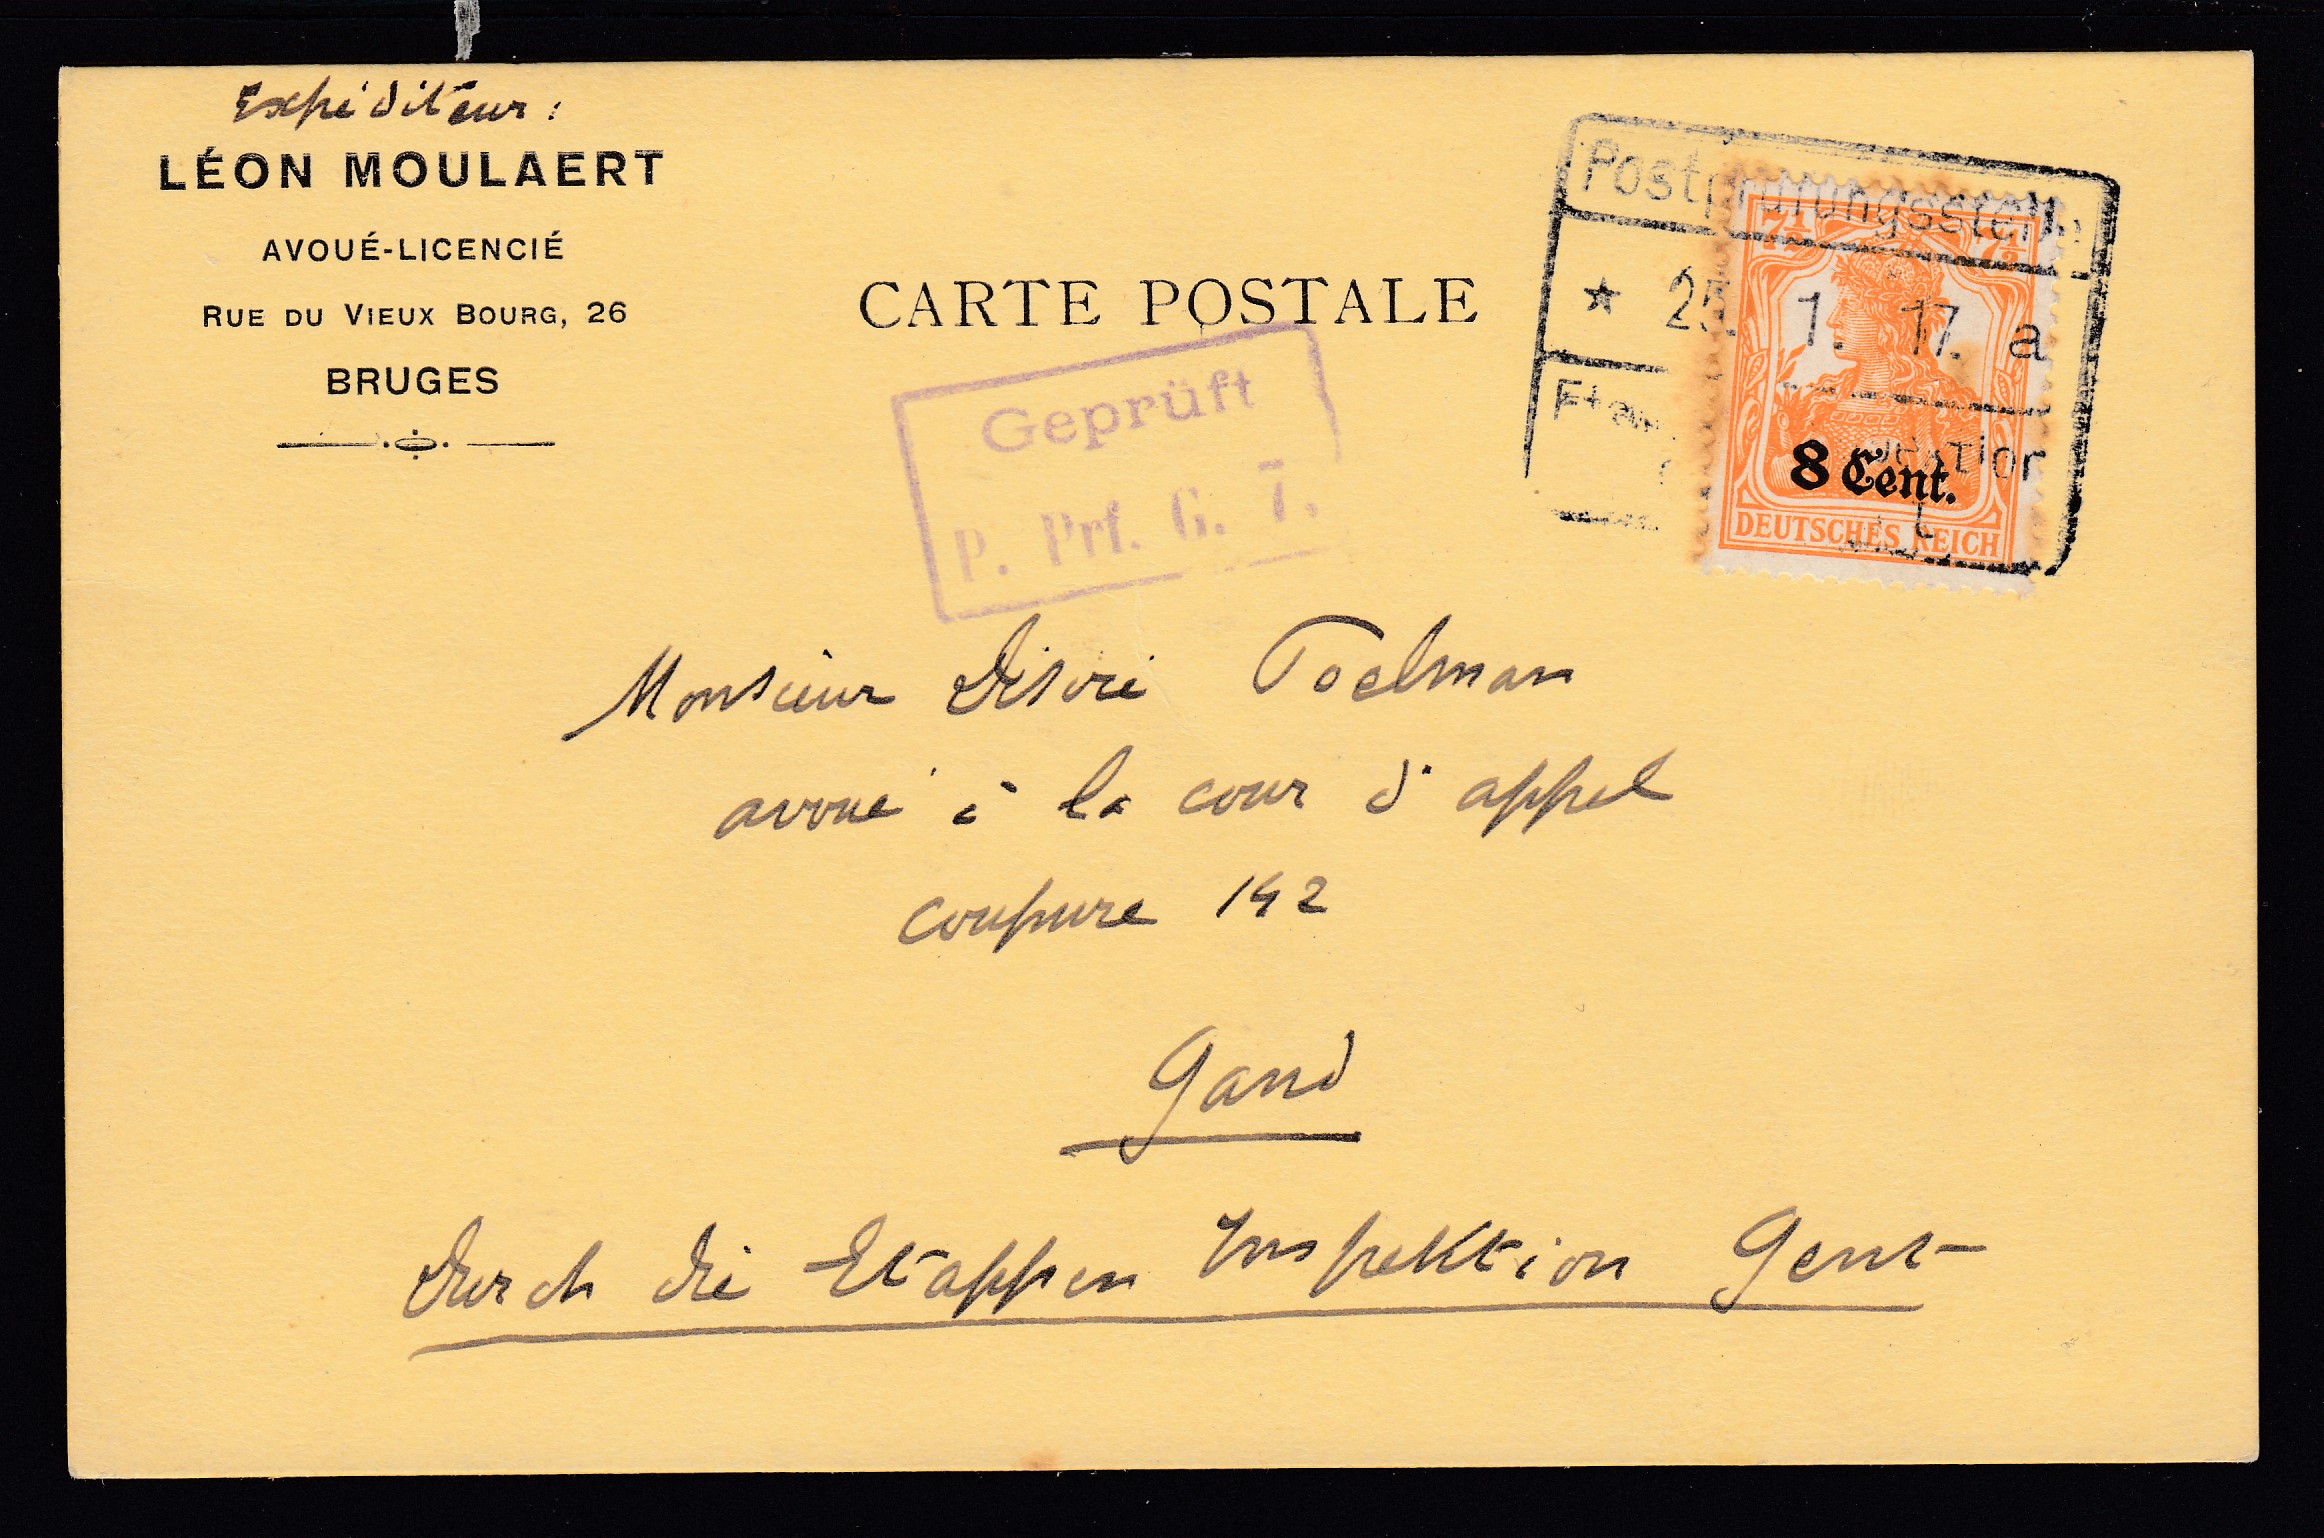 Expéditeur :
LÉON MOULAERT
AVOUÉ-LICENCIÉ
RUE DU VIEUX BOURG, 26
BRUGES
CARTE POSTALE
Postprüfungsstelle
* 25. 1. 17. a
7½ 7½
8 Cent.
DEUTSCHES REICH
Geprüft
P. Prf. G. 7.
Monsieur Désiré Poelman
avoué à la cour d'appel
Coupure 142
Gand
Durch die Etappen Inspektion Gent